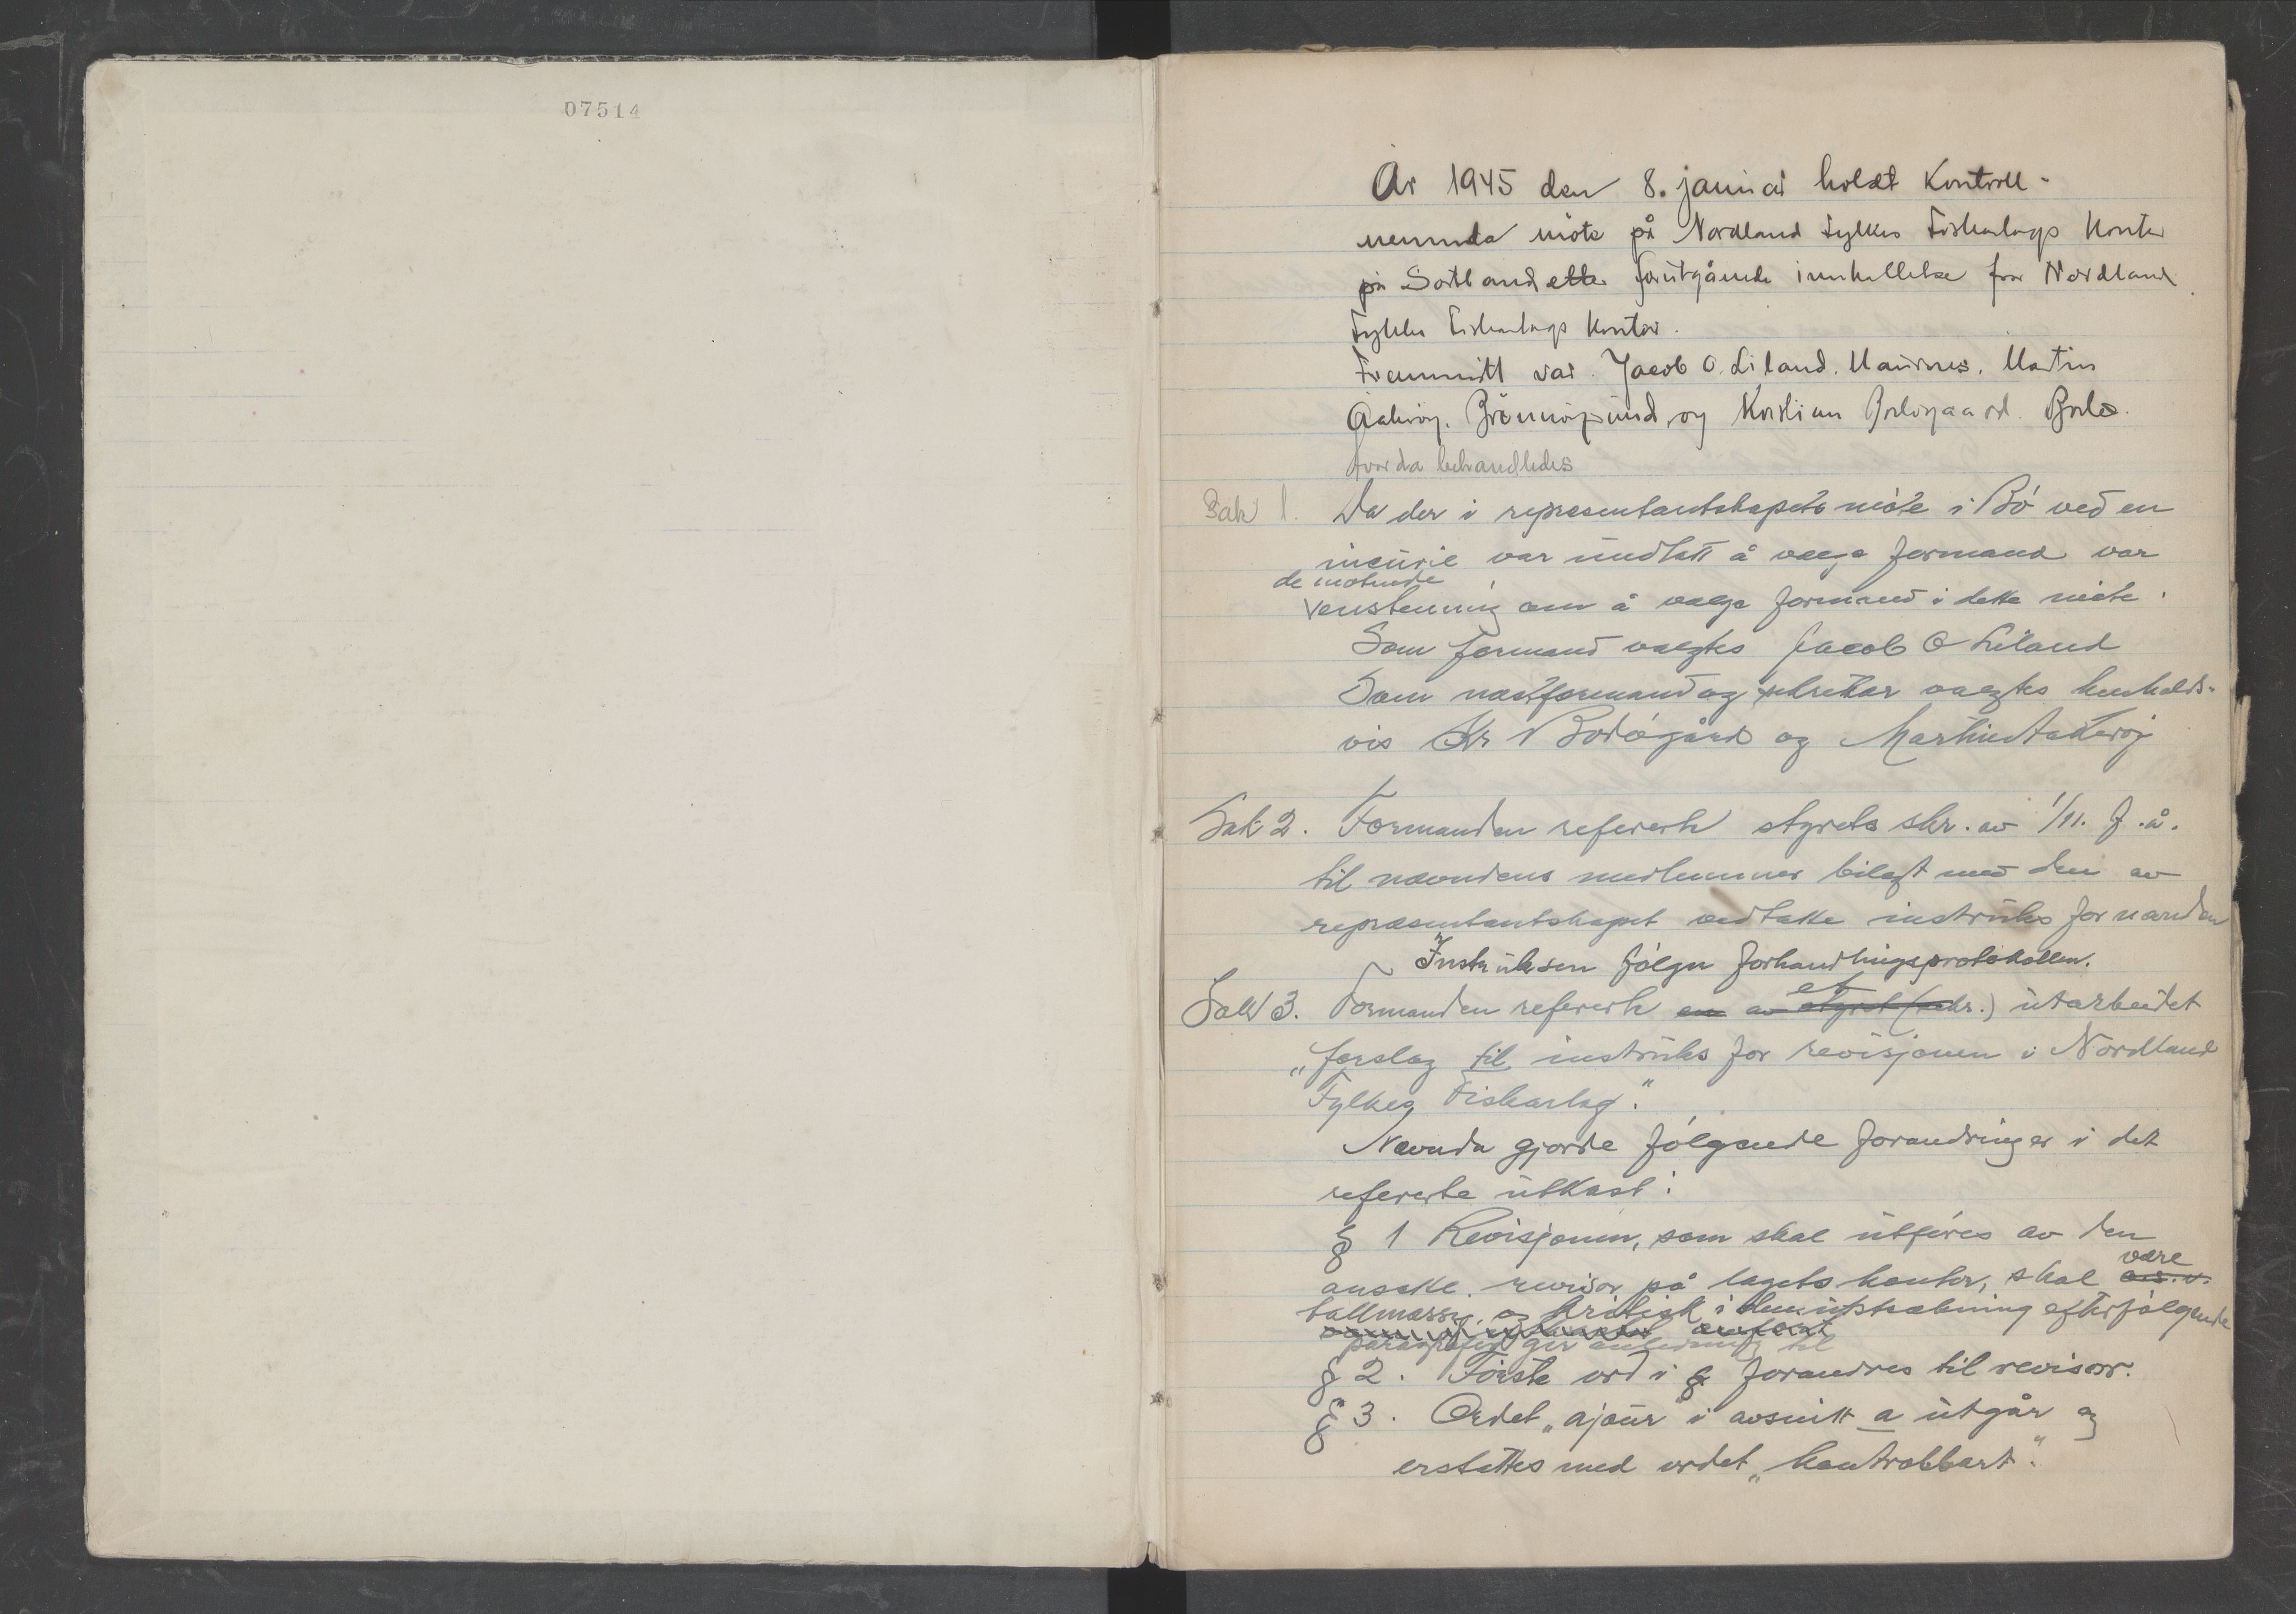 07514
År 1945 den 8. januar holdt Kontroll-
nemnda møte på Nordland Fylkes Fiskarlags Kontor
på Sortland etter forutgående innkallelse fra Nordland
Fylkes Fiskarlags Kontor.
Fremmøtt var. Jacob O. Liland. Maurnes. Martin
Aakvøy. Brønnøysund, og Kristian Bodøgaard. Bodø.
hvorda behandledes
Sak 1. Da der i representantskapets møte i Bø ved en
incurie var undlatt å vælge formand var
de møtende
venstemmig om å vælge formand i dette møte.
Som formand valgtes Jacob O Liland
Som næstformand og sekretær valgtes henholds-
vis Kr Bodøgård og Martin Aakvøy
Sak 2. Formanden refererte styrets skr. av 1/11. f.å.
til nævndens medlemmer bilagt med den av
representantskapet vedtatte instruks for nævnden
Instruksen følger forhandlingsprotokollen.
et
Sak 3. Formanden refererte en av styret (sekr.) utarbeidet
„forslag til instruks for revisjonen i Nordland
Fylkes Fiskarlag."
Nævnda gjorde følgende forandringer i det
refererte utkast:
§ 1 Revisjonen, som skal utføres av den
være
ansatte revisor på lagets kontor, skal
tallmæssig og kritisk i den utstrækning efterfølgende
paragrafer gir anledning til
§ 2. Første ord i § forandres til revisor.
§ 3. Ordet „ajour" i avsnitt a utgår og
erstattes med ordet „kontrollbart".